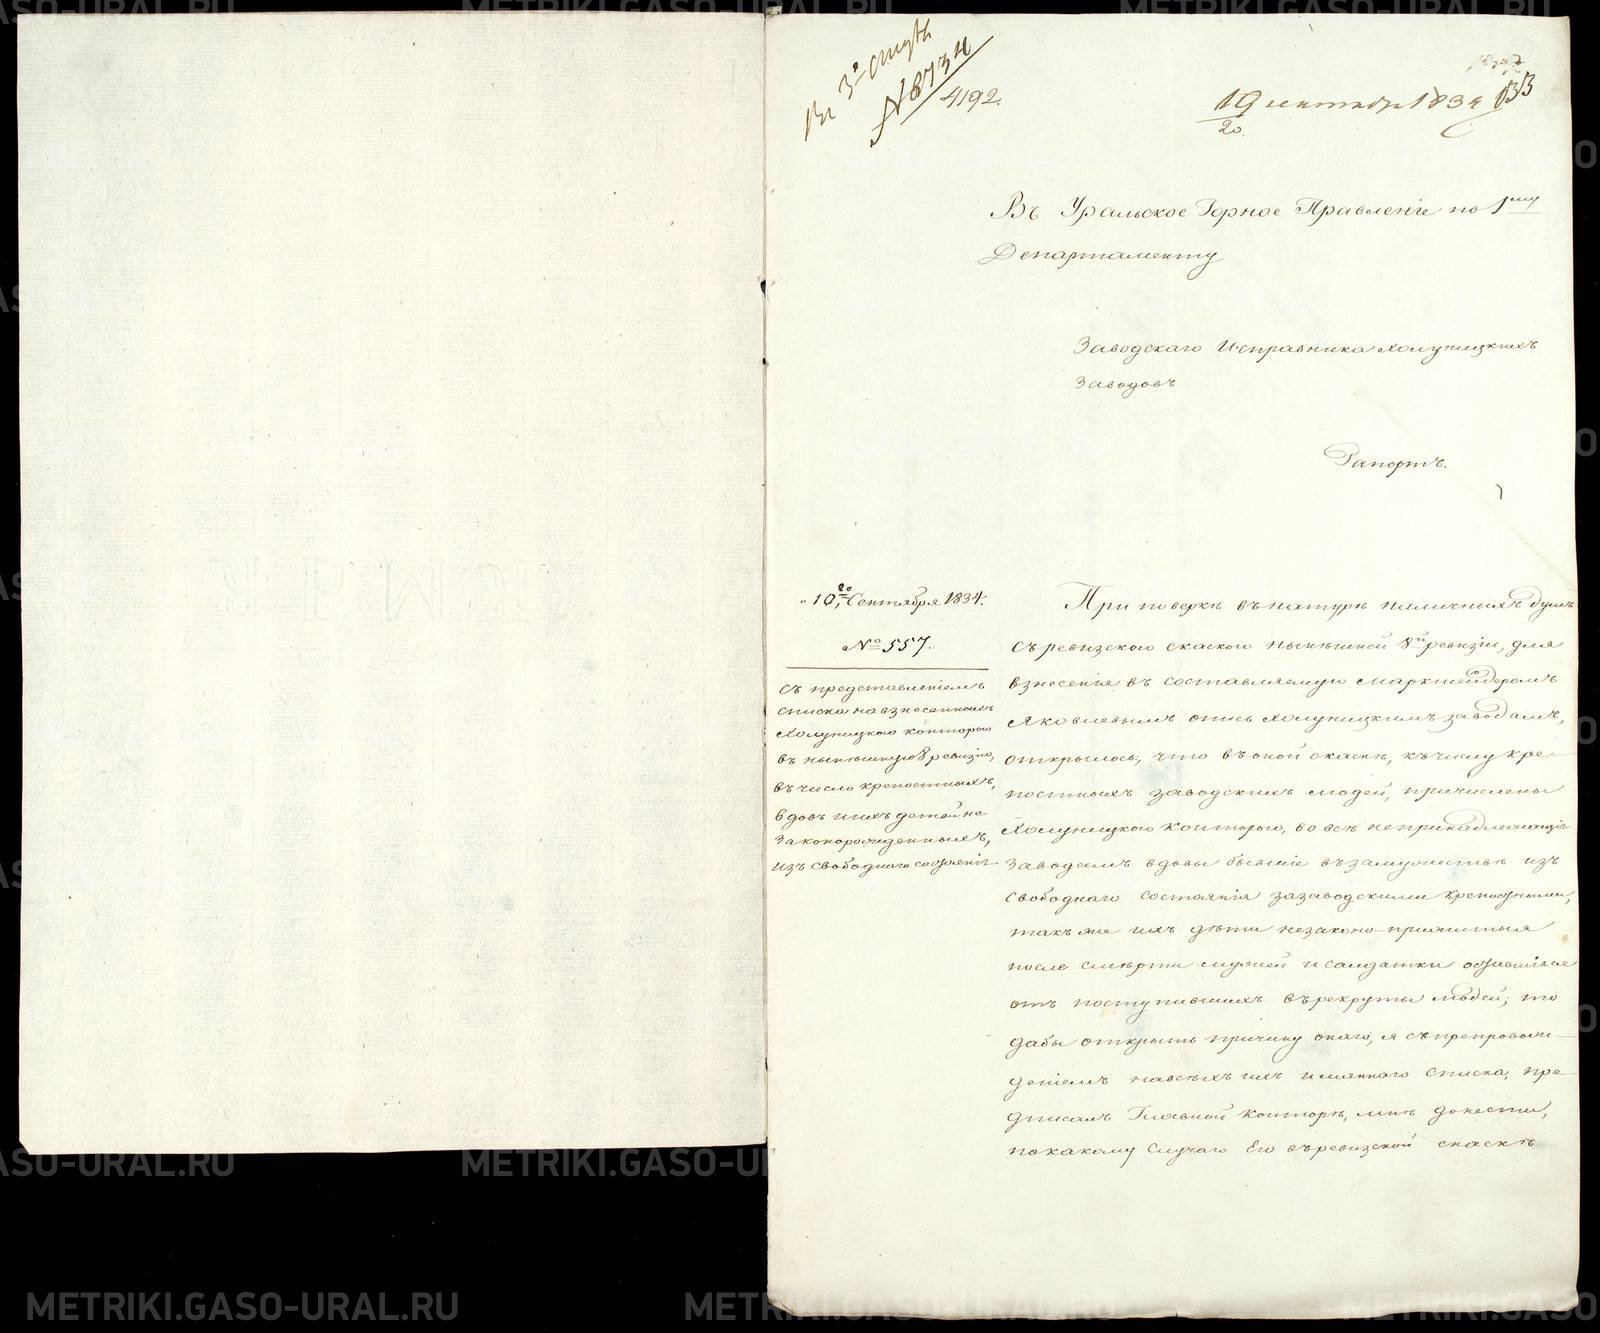 Въ 3й столъ
№ 8734
4192.
19 сентября 1834
20.
Въ Уральское Горное Правленіе по 1му
Департаменту
Заводскаго Исправника Холуницкихъ
Заводовъ
Рапортъ.
10го Сентября 1834.
№ 557.
Съ представленіемъ
списка на взнесенныхъ
Холуницкою конторою
въ нынѣшнюю 8 ревизію,
въ число крепостныхъ,
вдовъ и ихъ детей не
законорожденныхъ,
изъ свободнаго состоянія
При поверкѣ въ натурѣ наличныхъ душъ
съ ревизского скаского нынѣшней 8й ревизіи, для
взнесенія въ составляемую Маркшейдеромъ
Яковлевымъ опись Холуницкимъ заводамъ,
открылось, что въ оной сказкѣ, къ числу кре-
постныхъ заводскихъ людей, причислены
Холуницкою Конторою, во всѣ непринадлежащіе
Заводамъ вдовы бывшіе въ замужествѣ изъ
свободнаго состоянія за заводскими крепостными,
такъ же ихъ дѣти незаконно-прижитыя
после смѣрти мужей и салдатки оставшіеся
отъ поступившихъ въ рекруты людей; то
дабы открыть причину онаго, я съ препровож-
деніемъ на всѣхъ ихъ имяннаго списка, пре-
дписалъ Главной Конторѣ, мнѣ донести,
по какому случаю Ею въ ревизской скаскѣ
METRIKI.GASO-URAL.RU